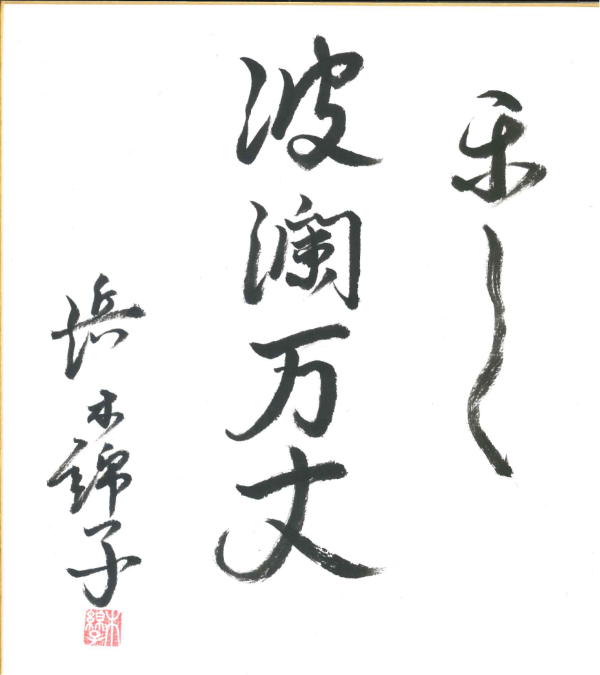 楽し
波瀾万丈
浜木綿子